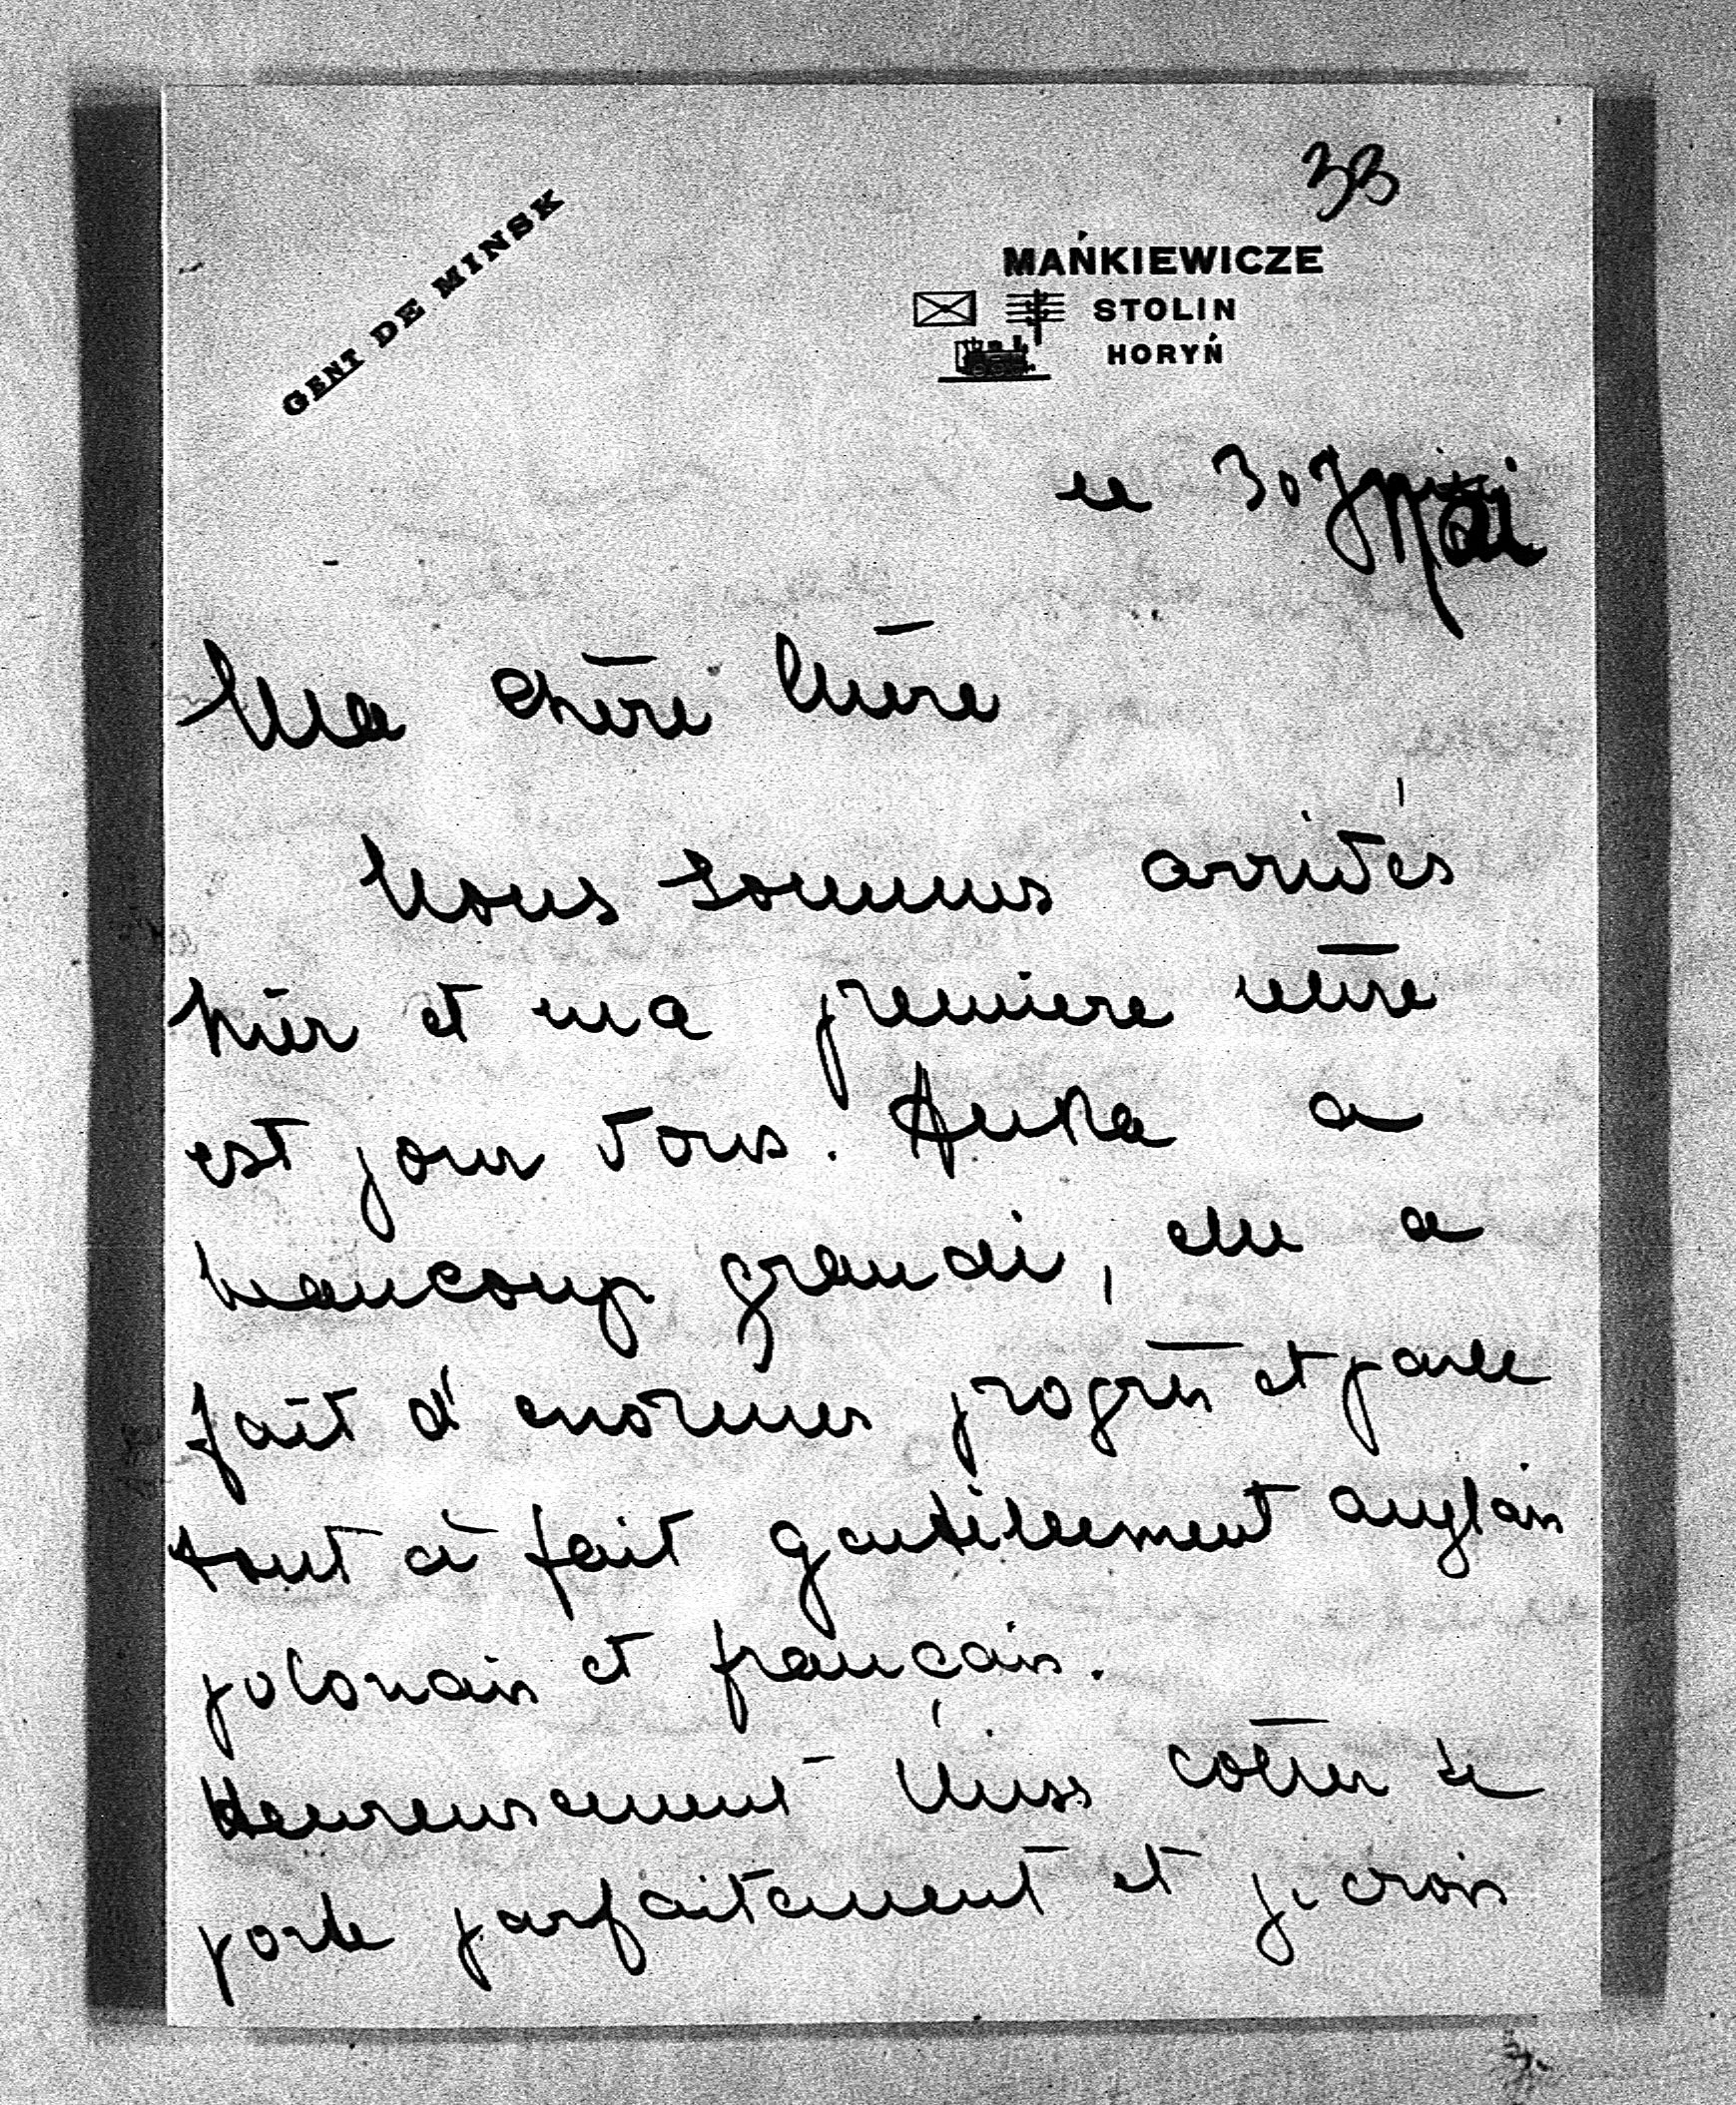 33
GENT DE MINSK
MAŃKIEWICZE
STOLIN
HORYŃ
le 30 Mai
Ma chère Mère
Nous sommes arrivés
hier et ma première lettre
est pour vous. Anka a
beaucoup grandi, elle a
fait d'enormes progrès et parle
tout à fait gentillement anglais
polonais et français.
Heureusement Miss Cotter se
porte parfaitement et je crois